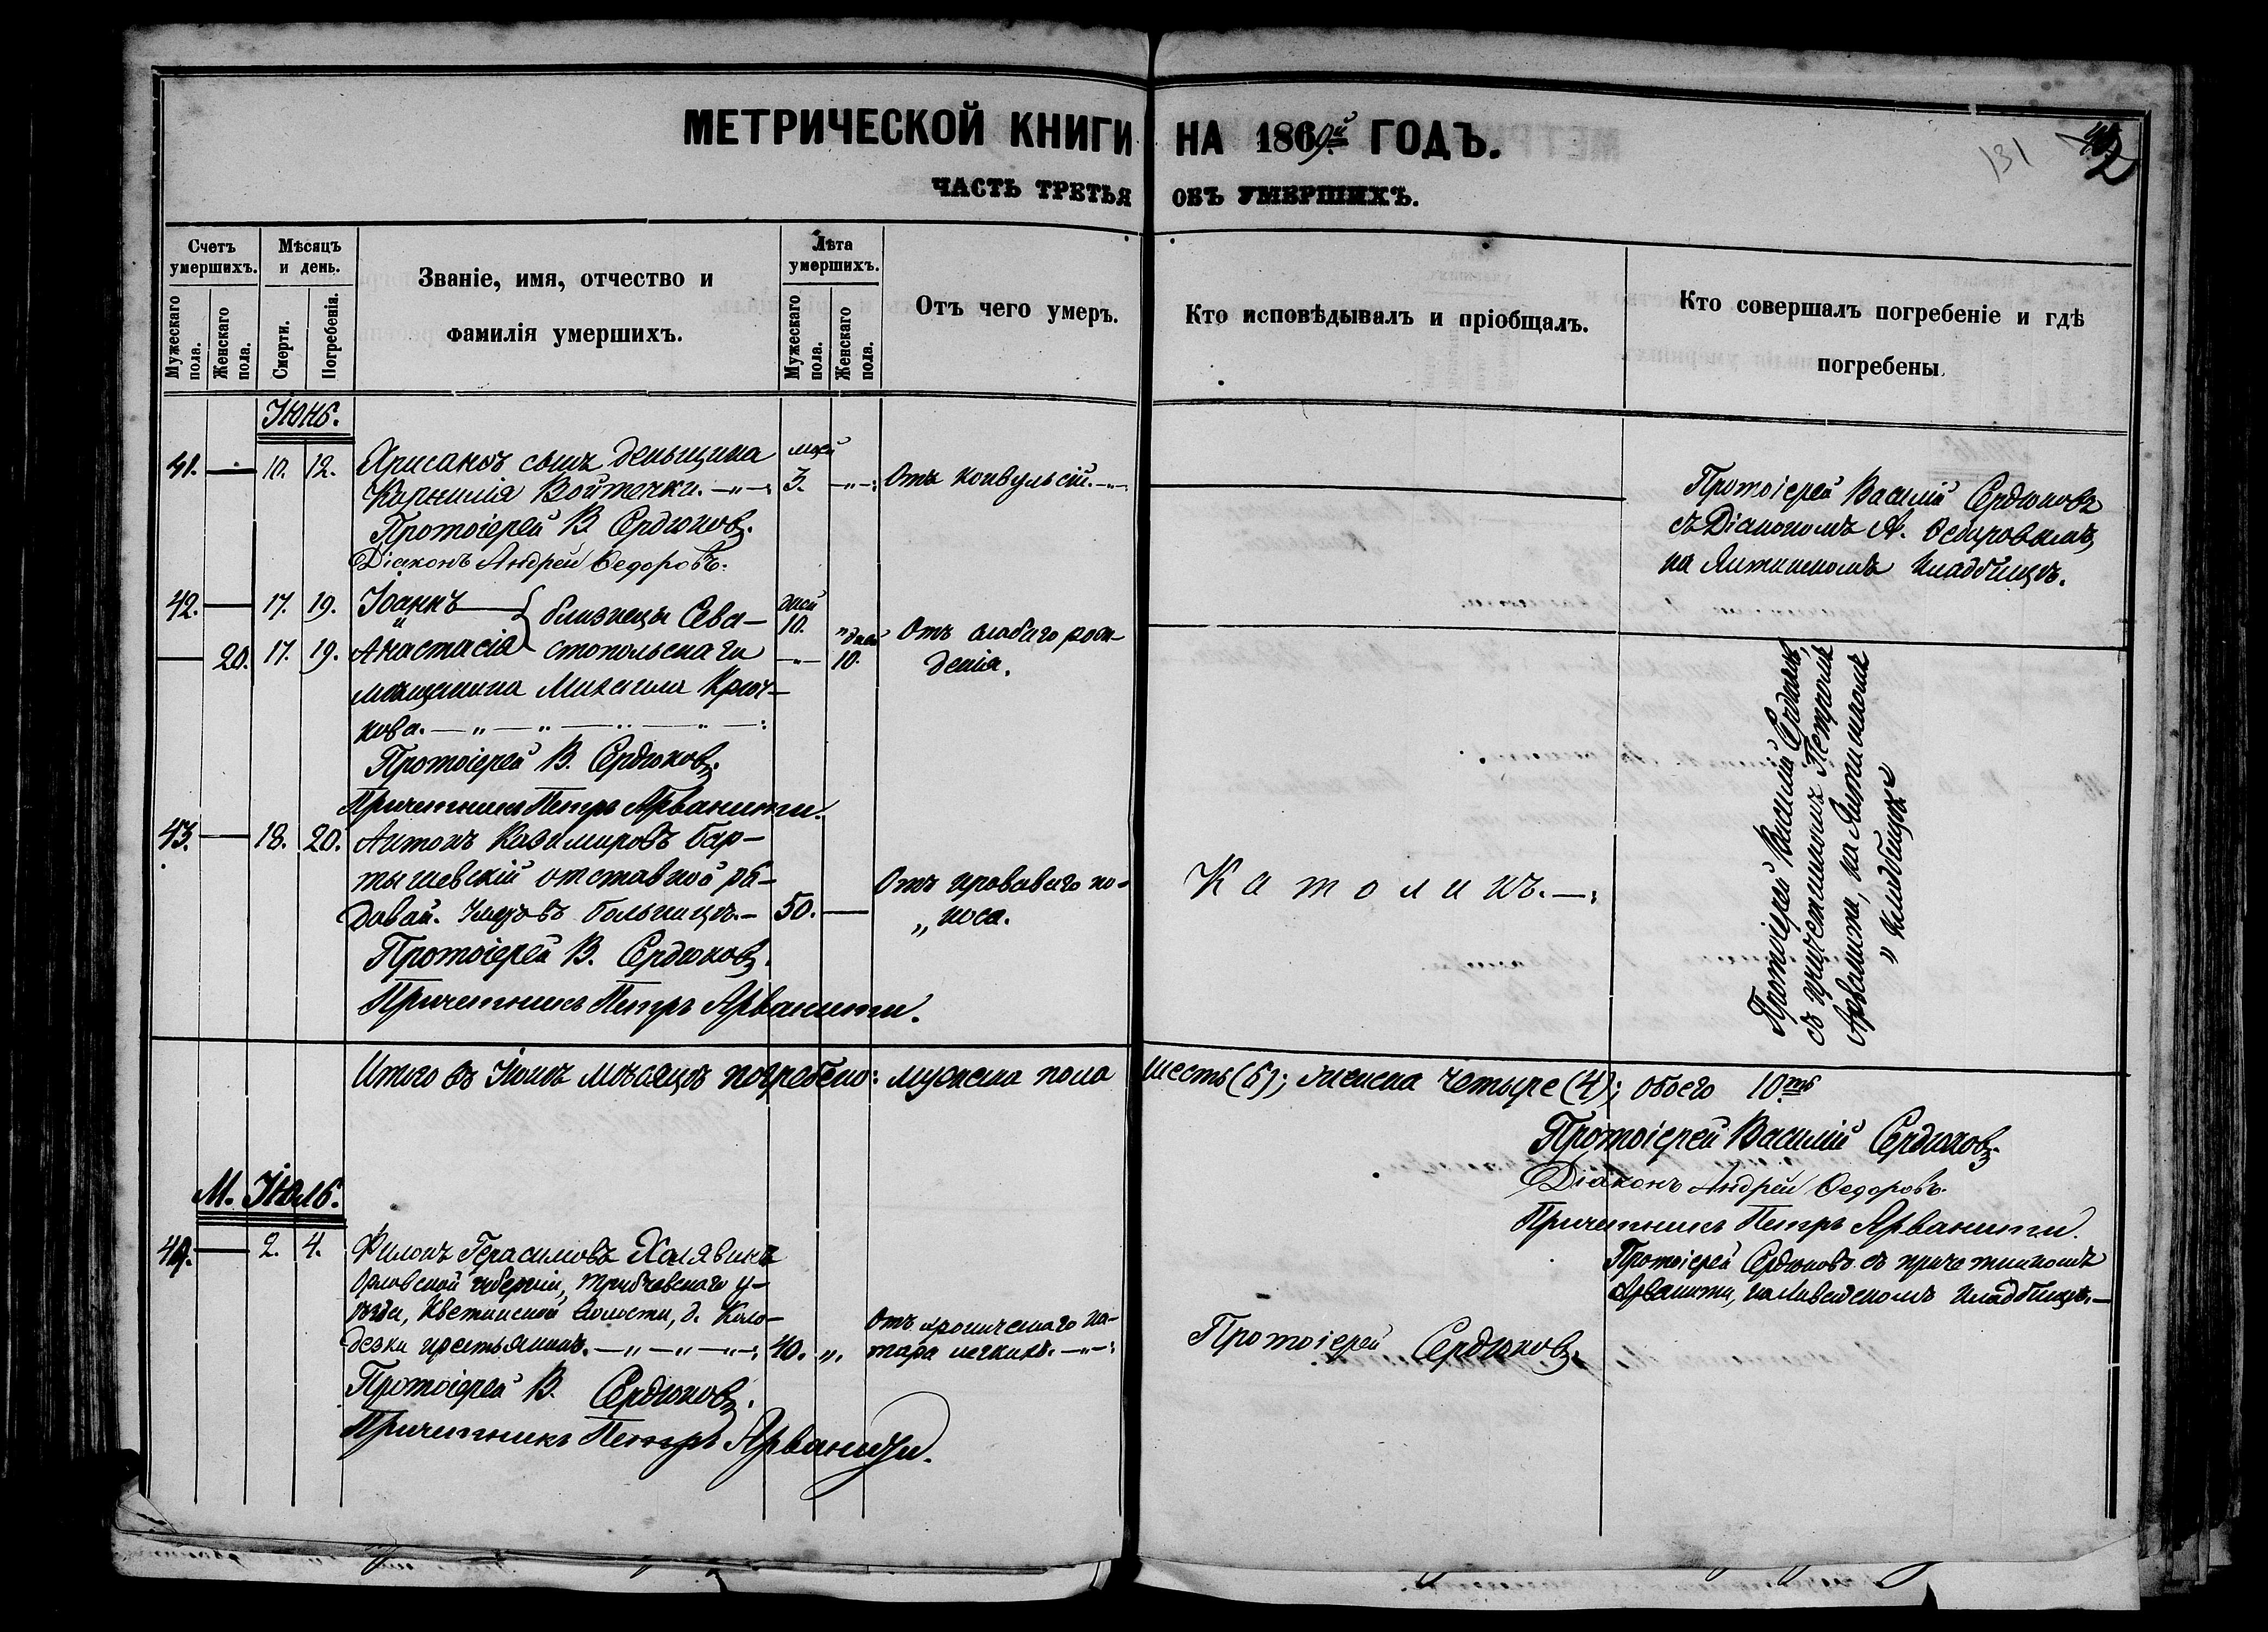 МЕТРИЧЕСКОЙ КНИГИ НА 1869й ГОДЪ.
131
42
ЧАСТЬ ТРЕТЬЯ ОБЪ УМЕРШИХЪ.
Счетъ умершихъ.
Мужескаго пола.
Женскаго пола.
Мѣсяцъ и день.
Смерти.
Погребенія.
Званіе, имя, отчество и
фамилія умершихъ.
Лѣта умершихъ.
Мужескаго пола.
Женскаго пола.
Отъ чего умеръ.
Кто исповѣдывалъ и пріобщалъ.
Кто совершалъ погребеніе и гдѣ
погребены.
Іюнь.
41. — 10. 12. сынъ деньщика
Корнилія Войтечки. 3. Отъ конвульсій.
Протоіерей В. Сердюковъ.
Діаконъ Андрей Ѳедоровъ.
Протоіерей Василій Сердюковъ
съ Діакономъ А. Ѳедоровымъ,
на Ялтинскомъ кладбищѣ.
42. — 17. 19. Іоаннъ
— 20. 17. 19. Анастасія
близнецы Сева-
стопольскаго
мѣщанина Михаила Крюч-
кова.
дней 10.
дней 10.
Отъ слабаго рож-
денія.
Протоіерей В. Сердюковъ.
Причетникъ Петръ Арванити.
43. — 18. 20. Антонъ Казимировъ Бар-
тышевскій отставной ря-
довой. въ больницѣ. 50. —
Отъ кроваваго по-
носа.
Католикъ.
Протоіерей В. Сердюковъ.
Причетникъ Петръ Арванити.
Протоіерей Василій Сердюковъ,
съ причетникомъ Петромъ
Арванити, на Ялтинскомъ
кладбищѣ
Итого въ Іюнѣ мѣсяцѣ погребено: мужеска пола шесть (6); женска четыре (4); обоего 10ть
Протоіерей Василій Сердюковъ.
Діаконъ Андрей Ѳедоровъ.
Причетникъ Петръ Арванити.
М. Іюль.
44. — 2. 4. Филонъ Герасимовъ Халявинъ
Орловской губерніи, Трубчевскаго у-
ѣзда, Кветунской волости, д. Коло-
дезки крестьянинъ. 40.
Отъ хроническаго ка-
тара легкихъ.
Протоіерей Сердюковъ.
Протоіерей Сердюковъ съ причетникомъ
Арванити, на Ливадскомъ кладбищѣ.
Протоіерей В. Сердюковъ.
Причетникъ Петръ Арванити.